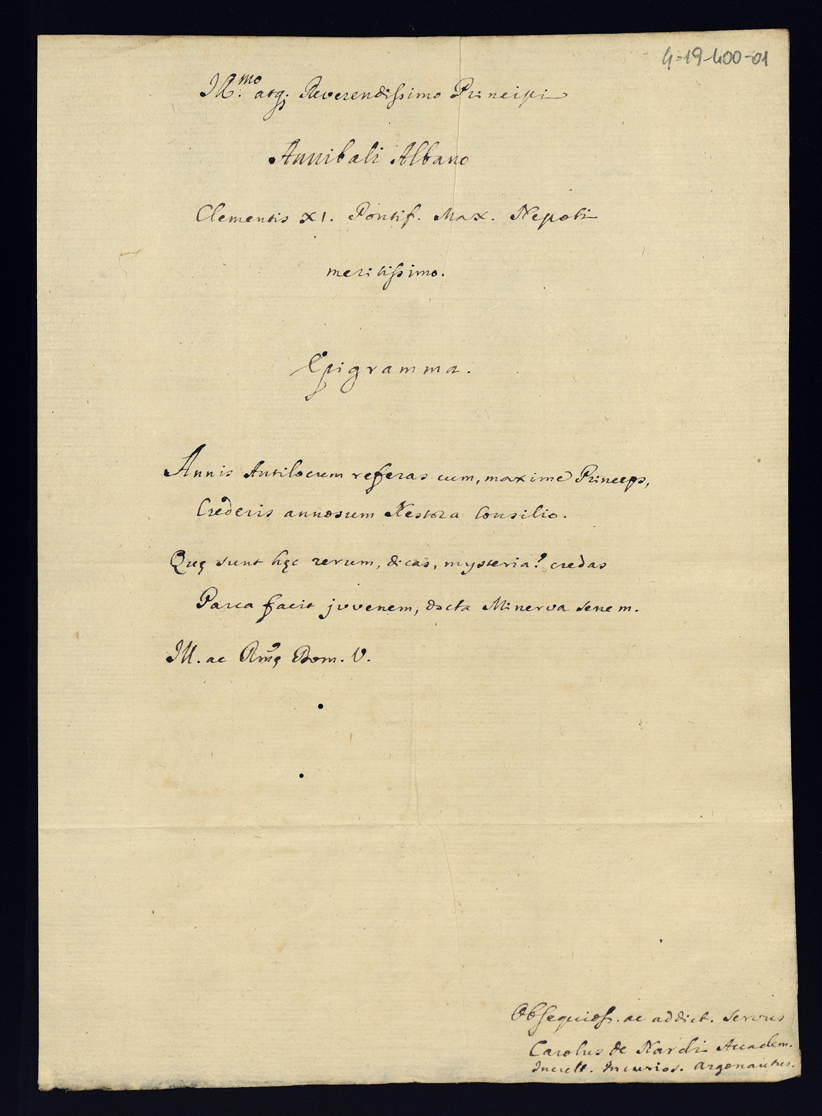 4-19-400-01
Ill.mo atq; Reverendissimo Principi
Annibali Albano
Clementis XI. Pontif. Max. Nepoti
meritissimo.
Epigramma.
Annis Antilocum referas cum, maxime Princeps,
Crederis annosum Nestora Consilio.
Quę sunt hęc rerum, dicas, mysteria? credas
Parca facit juvenem, docta Minerva senem.
Ill. ac Rmę Dom. V.
Obsequiosis. ac addict. servus
Carolus de Nardis Academ.
Incult. Incurios. Argonautus.